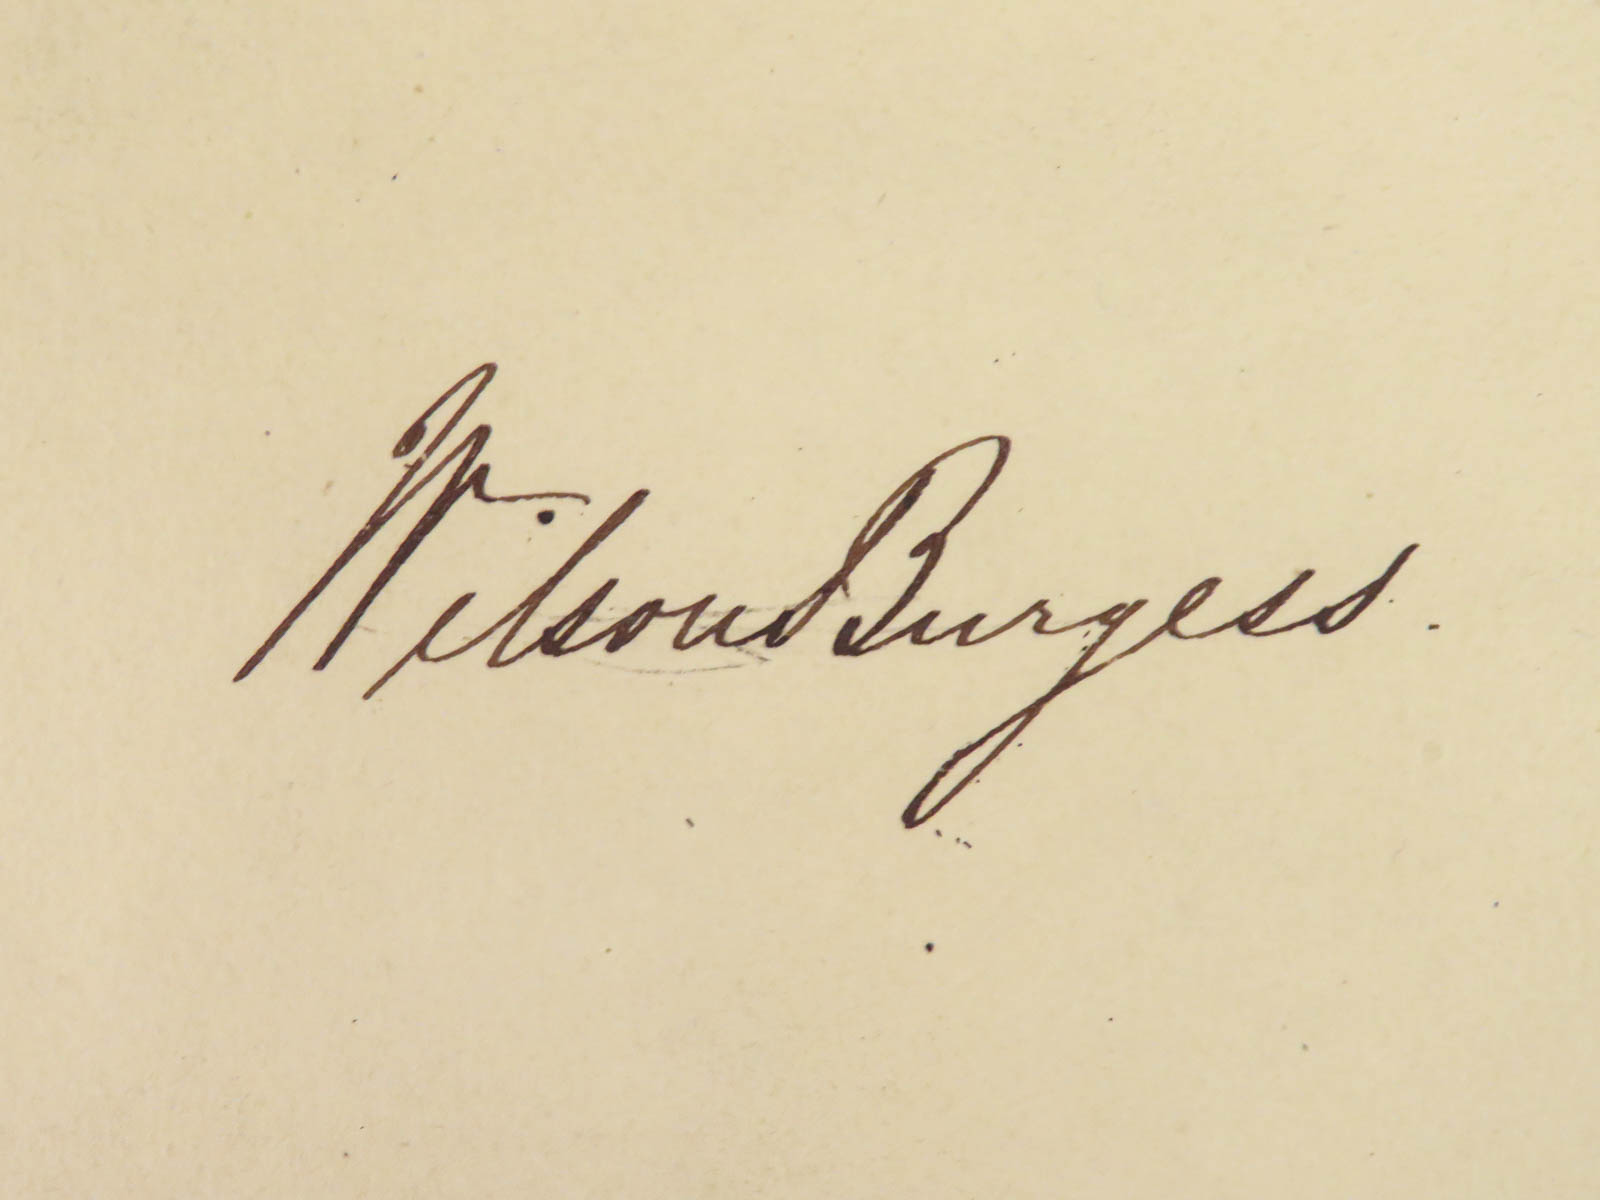 Wilson Burgess.